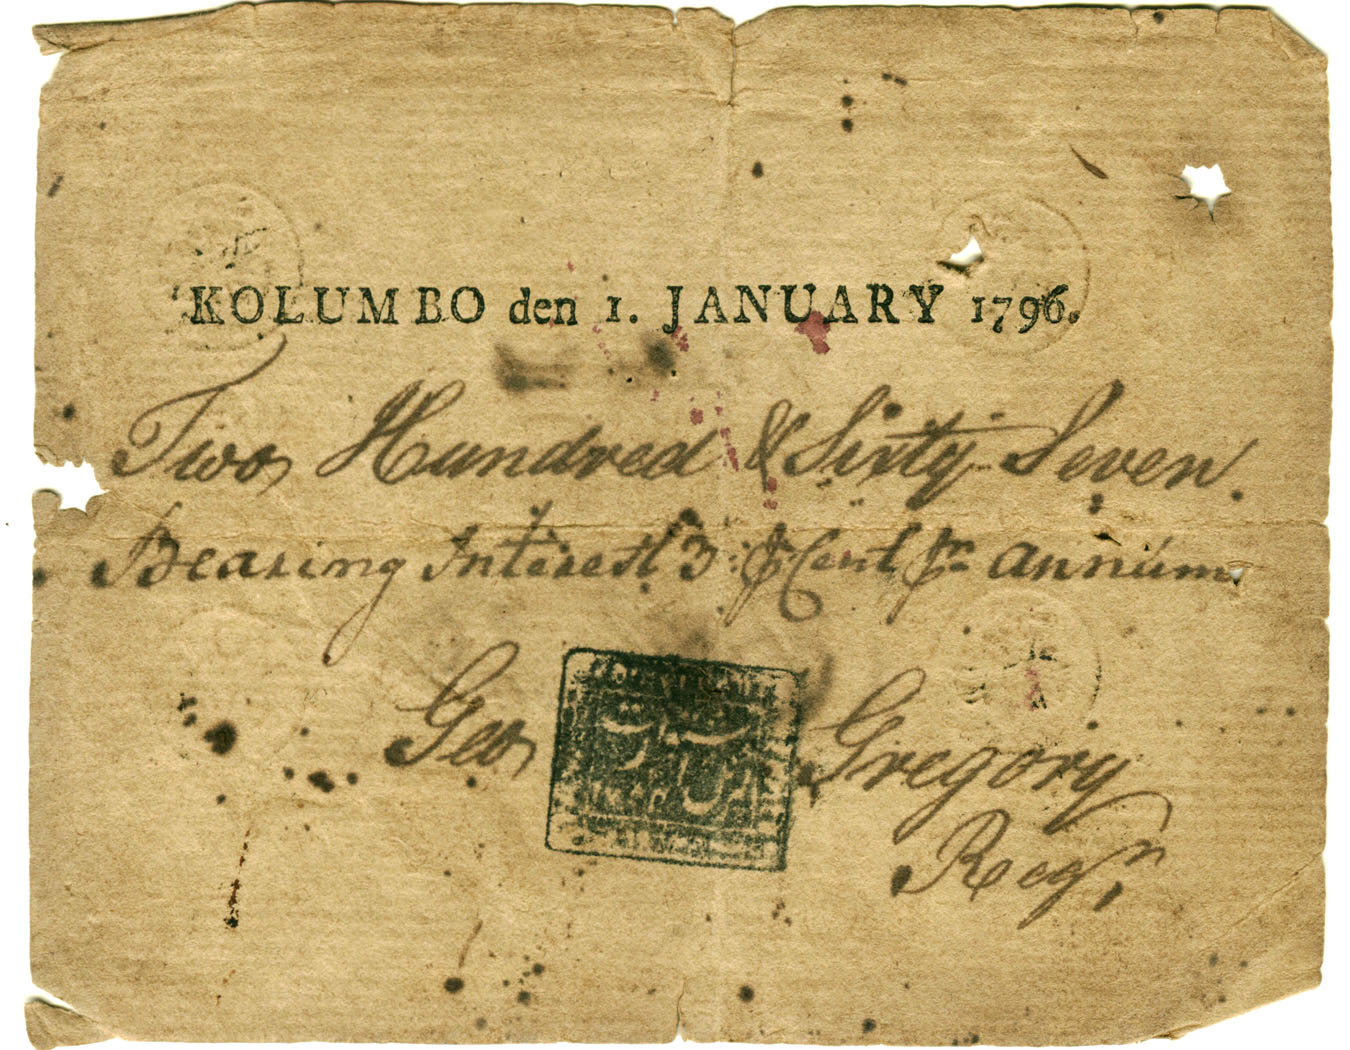 KOLUMBO den 1. JANUARY 1796.
Two Hundred & Sixty Seven.
Bearing Interest 3 ⅌ Cent ⅌r annum
Geo Gregory
Regr.